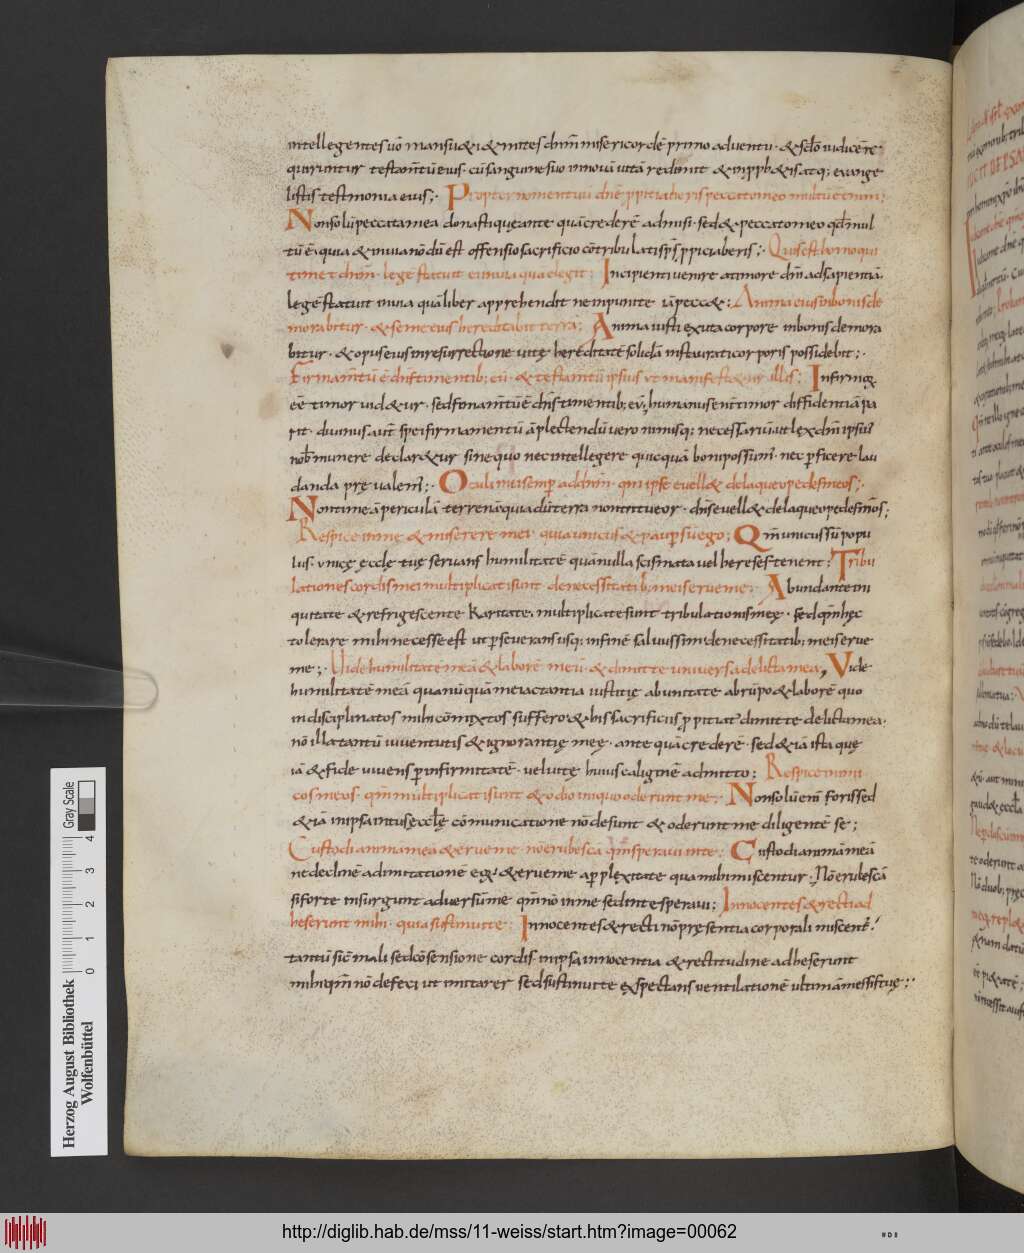 intellegentes uō mansu&i & mites dn̄m misericordē primo aduentu · & scd̄o iudicē re
quiruntur testam̄tū eius · cū sanguine suo in nouā uitā redimit & in pph&is atq; euange
listis testimonia eius ;·
Propter nomen tuū dn̄e ppitiaberis peccato meo multū ē enim ;
Non solū peccata mea donasti quę ante quā crederē admisi · sed & peccato meo qd̄ mul
tū ē · quia & in uia nō dū est offensio sacrificio cōtribulati sp̄s ppiciaberis ;· Quis est homo qui
timet dn̄m · legē statuit ei in uia qua elegit ; Incipienti uenire a timore dn̄i ad sapientiā ·
legē statuit in uia quā liber apprehendit ne inpunite iā pecc& ; Anima eius in bonis de
morabitur · & semen eius hereditabit terrā ; Anima iusti exuta corpore in bonis demora
bitur · & opus eius in resurrectione uitę hereditatē solidā instaurati corporis possidebit ;·
Firmam̄tū ē dn̄s timentib; eū · & testam̄tū ipsius ut manifest&ur illis ; Infirmę
ēē timor uid&ur · sed fonam̄tū ē dn̄s timentib; eū, humanus enī timor diffidentiā pa
rit · diuinus aut̄ spei firmamentū āplectendū uero nimisq; necessariū ut lex dn̄i ipsiꝰ
nob̄ munere declar&ur sine quo nec intellegere quicquā boni possum̄ · nec pficere lau
danda pręualem̄ ;· Oculi mei semp ad dn̄m · qm̄ ipse euell& de laqueo pedes meos ;·
Non timeā periculā terrenā quia dū terrā non intueor · dn̄s euell& de laqueo pedes m̄os ;
Respice in me & miserere mei · quia unicus & paup sū ego ; Qm̄ unicus sū popu
lus · unicę ęccłę tuę seruans humilitatē quā nulla scismata uel hereses tenent ; Tribu
lationes cordis mei multiplicati sunt · de necessitatib; meis erue me ; Abundante ini
quitate & refrigescente karitate, multiplicate sunt tribulationis meę · sed qm̄ hęc
tolerare mihi necesse est ut pseuerans usq; in finē saluus sim de necessitatib; meis erue
me ;· Vide humilitatē meā & laborē meū · & dimitte uniuersa delicta mea ; Vide
humilitatē meā qua nūquā me iactantia iustitię ab unitate abrūpo & laborē quo
indisciplinatos mihi cōmixtos suffero & his sacrificiis ppitiat dimitte delicta mea ·
nō illa tantū iuuentutis & ignorantię meę · ante quā crederē · sed & iā ista quę
iā & fide uiuens p infirmitatē · uel uitę huius caliginē admitto ; Respice inimi
cos meos · qm̄ multiplicati sunt & odio iniquo oderunt me ; Non solū enī foris sed
& iā in ipsa intus ęccłę cōmunicatione nō desunt & oderunt me diligentē se ;
Custodi animā meā & erue me nō erubescā qm̄ speraui in te ; Custodi animā meā
ne declinē ad imitationē eoꝝ & erue me a pplexitate qua mihi miscentur · Nō erubescā
si forte insurgunt aduersū me qm̄ nō in me sed in te speraui ; Innocentes & recti ad
heserunt mihi · quia sustinui te ; Innocentes & recti nō pręsentia corporali miscent̄ ·
tantū sic̄ mali sed cōsensione cordis · in ipsa innocentia & rectitudine adheserunt
mihi qm̄ nō defeci ut imitarer sed sustinui te expectans uentilationē ultimā messis tuę ;·
Herzog August Bibliothek
Wolfenbüttel
0 1 2 3 4
Gray Scale
http://diglib.hab.de/mss/11-weiss/start.htm?image=00062